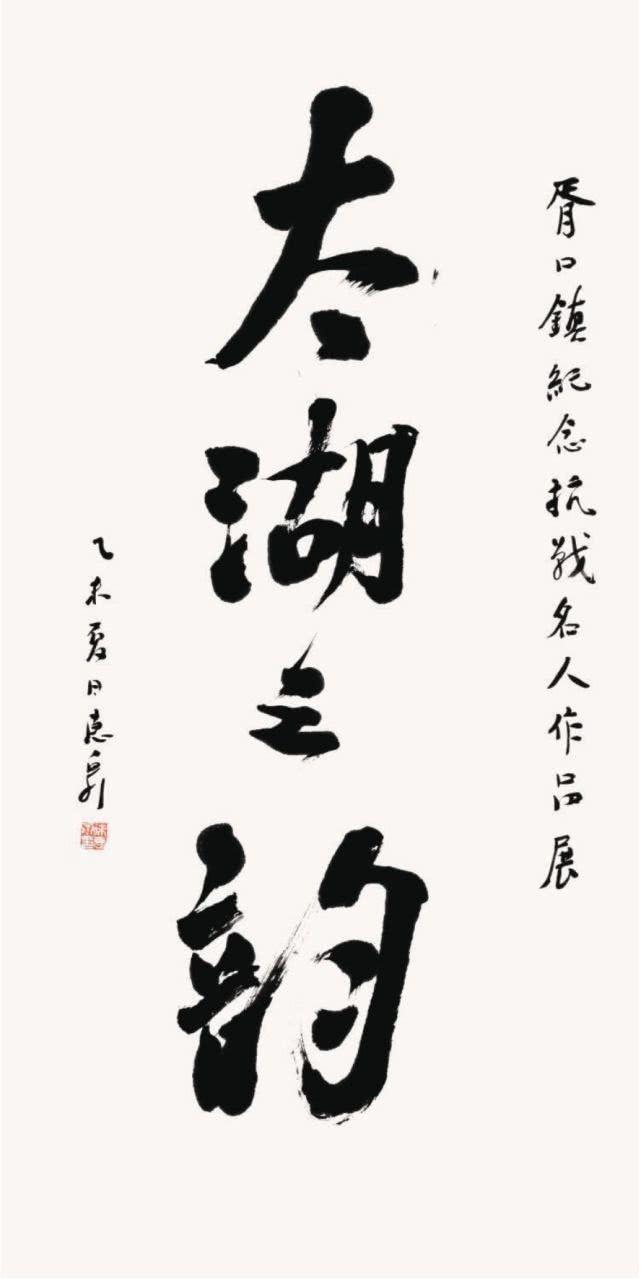 胥口鎮紀念抗战名人作品展
太湖之韵
乙未夏日惠泉